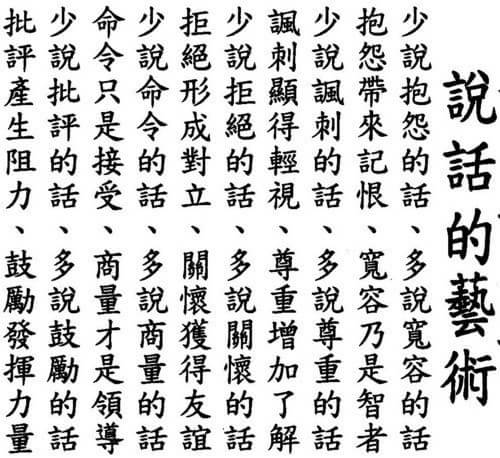 說話的藝術
少說抱怨的話、多說寬容的話
抱怨帶來記恨、寬容乃是智者
少說諷刺的話、多說尊重的話
諷刺顯得輕視、尊重增加了解
少說拒絕的話、多說關懷的話
拒絕形成對立、關懷獲得友誼
少說命令的話、多說商量的話
命令只是接受、商量才是領導
少說批評的話、多說鼓勵的話
批評產生阻力、鼓勵發揮力量